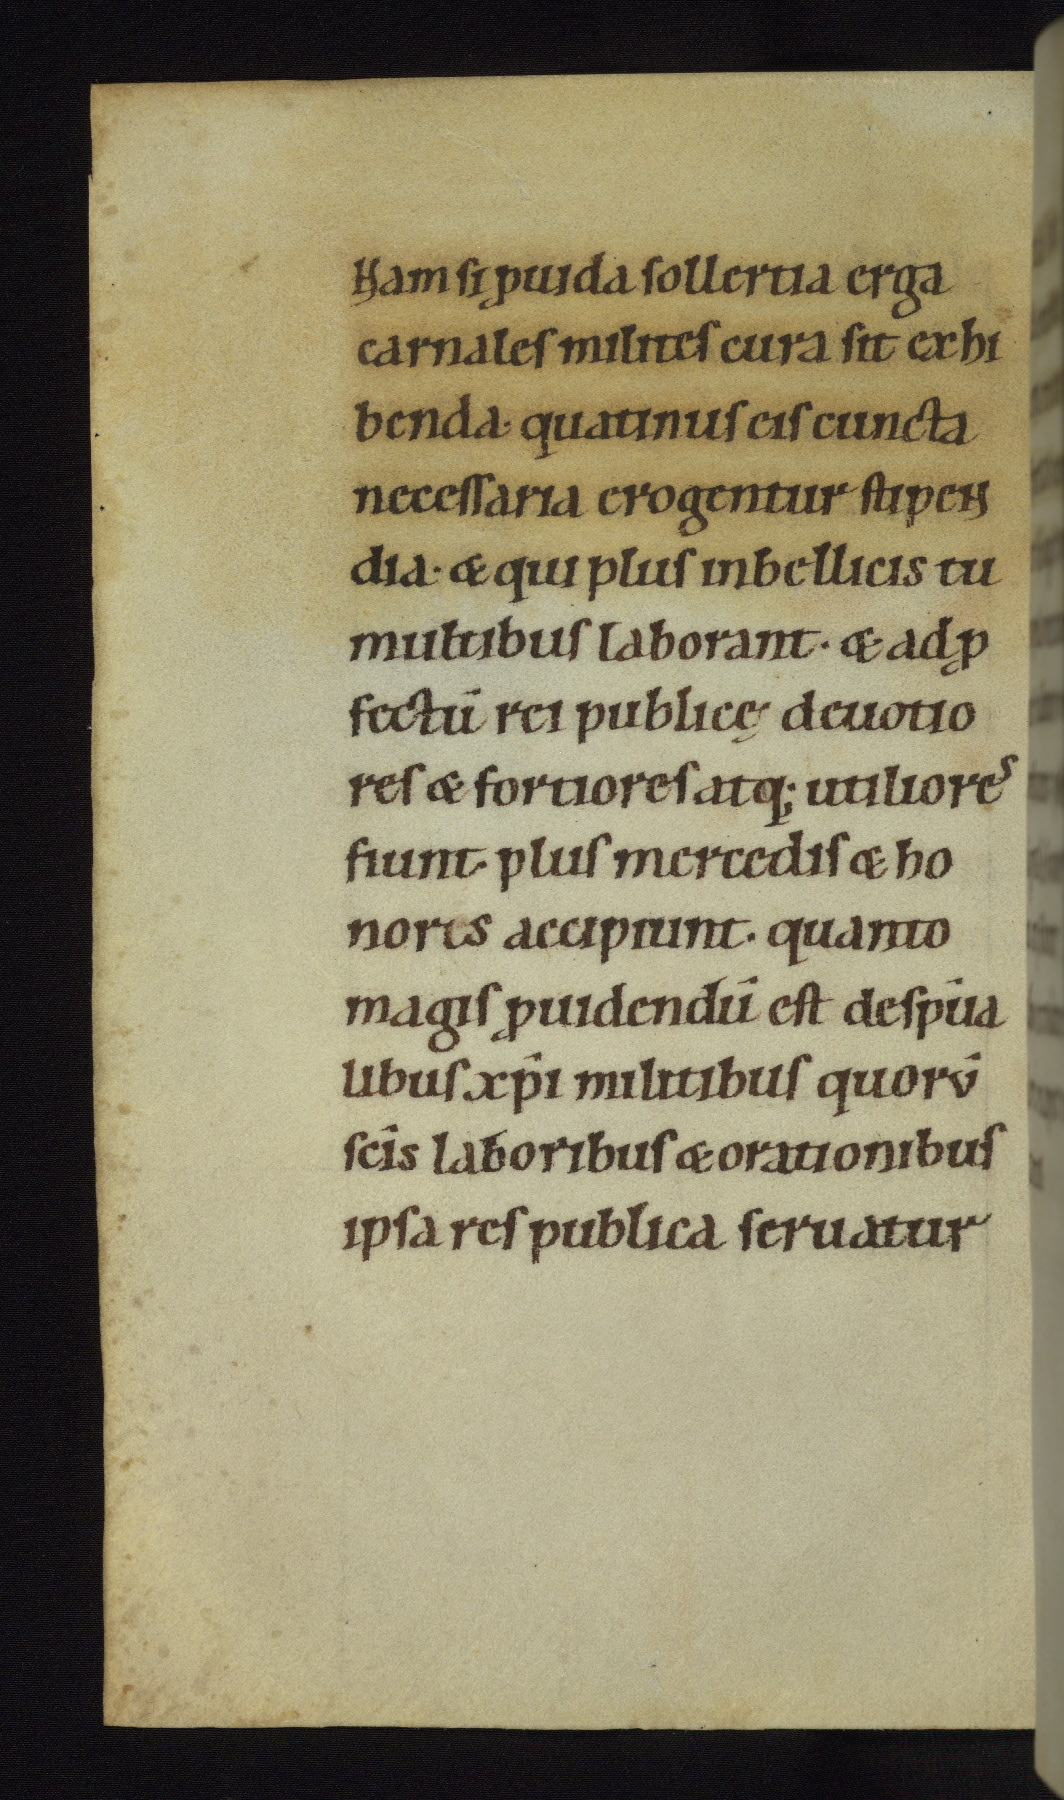 Nam si ꝓuida sollertia erga
carnales milites cura sit exhi
benda· quatinus eis cuncta
necessaria erogentur stipen
dia· & qui plus in bellicis tu
multibus laborant· & ad ꝓ
fectū rei publicę deuotio
res & fortiores atq; utiliores
fiunt· plus mercedis & ho
noris accipiunt· quanto
magis ꝓuidendū est de sp̄ua
libus xp̄i militibus quorū
sc̄is laboribus & orationibus
ipsa res publica seruatur